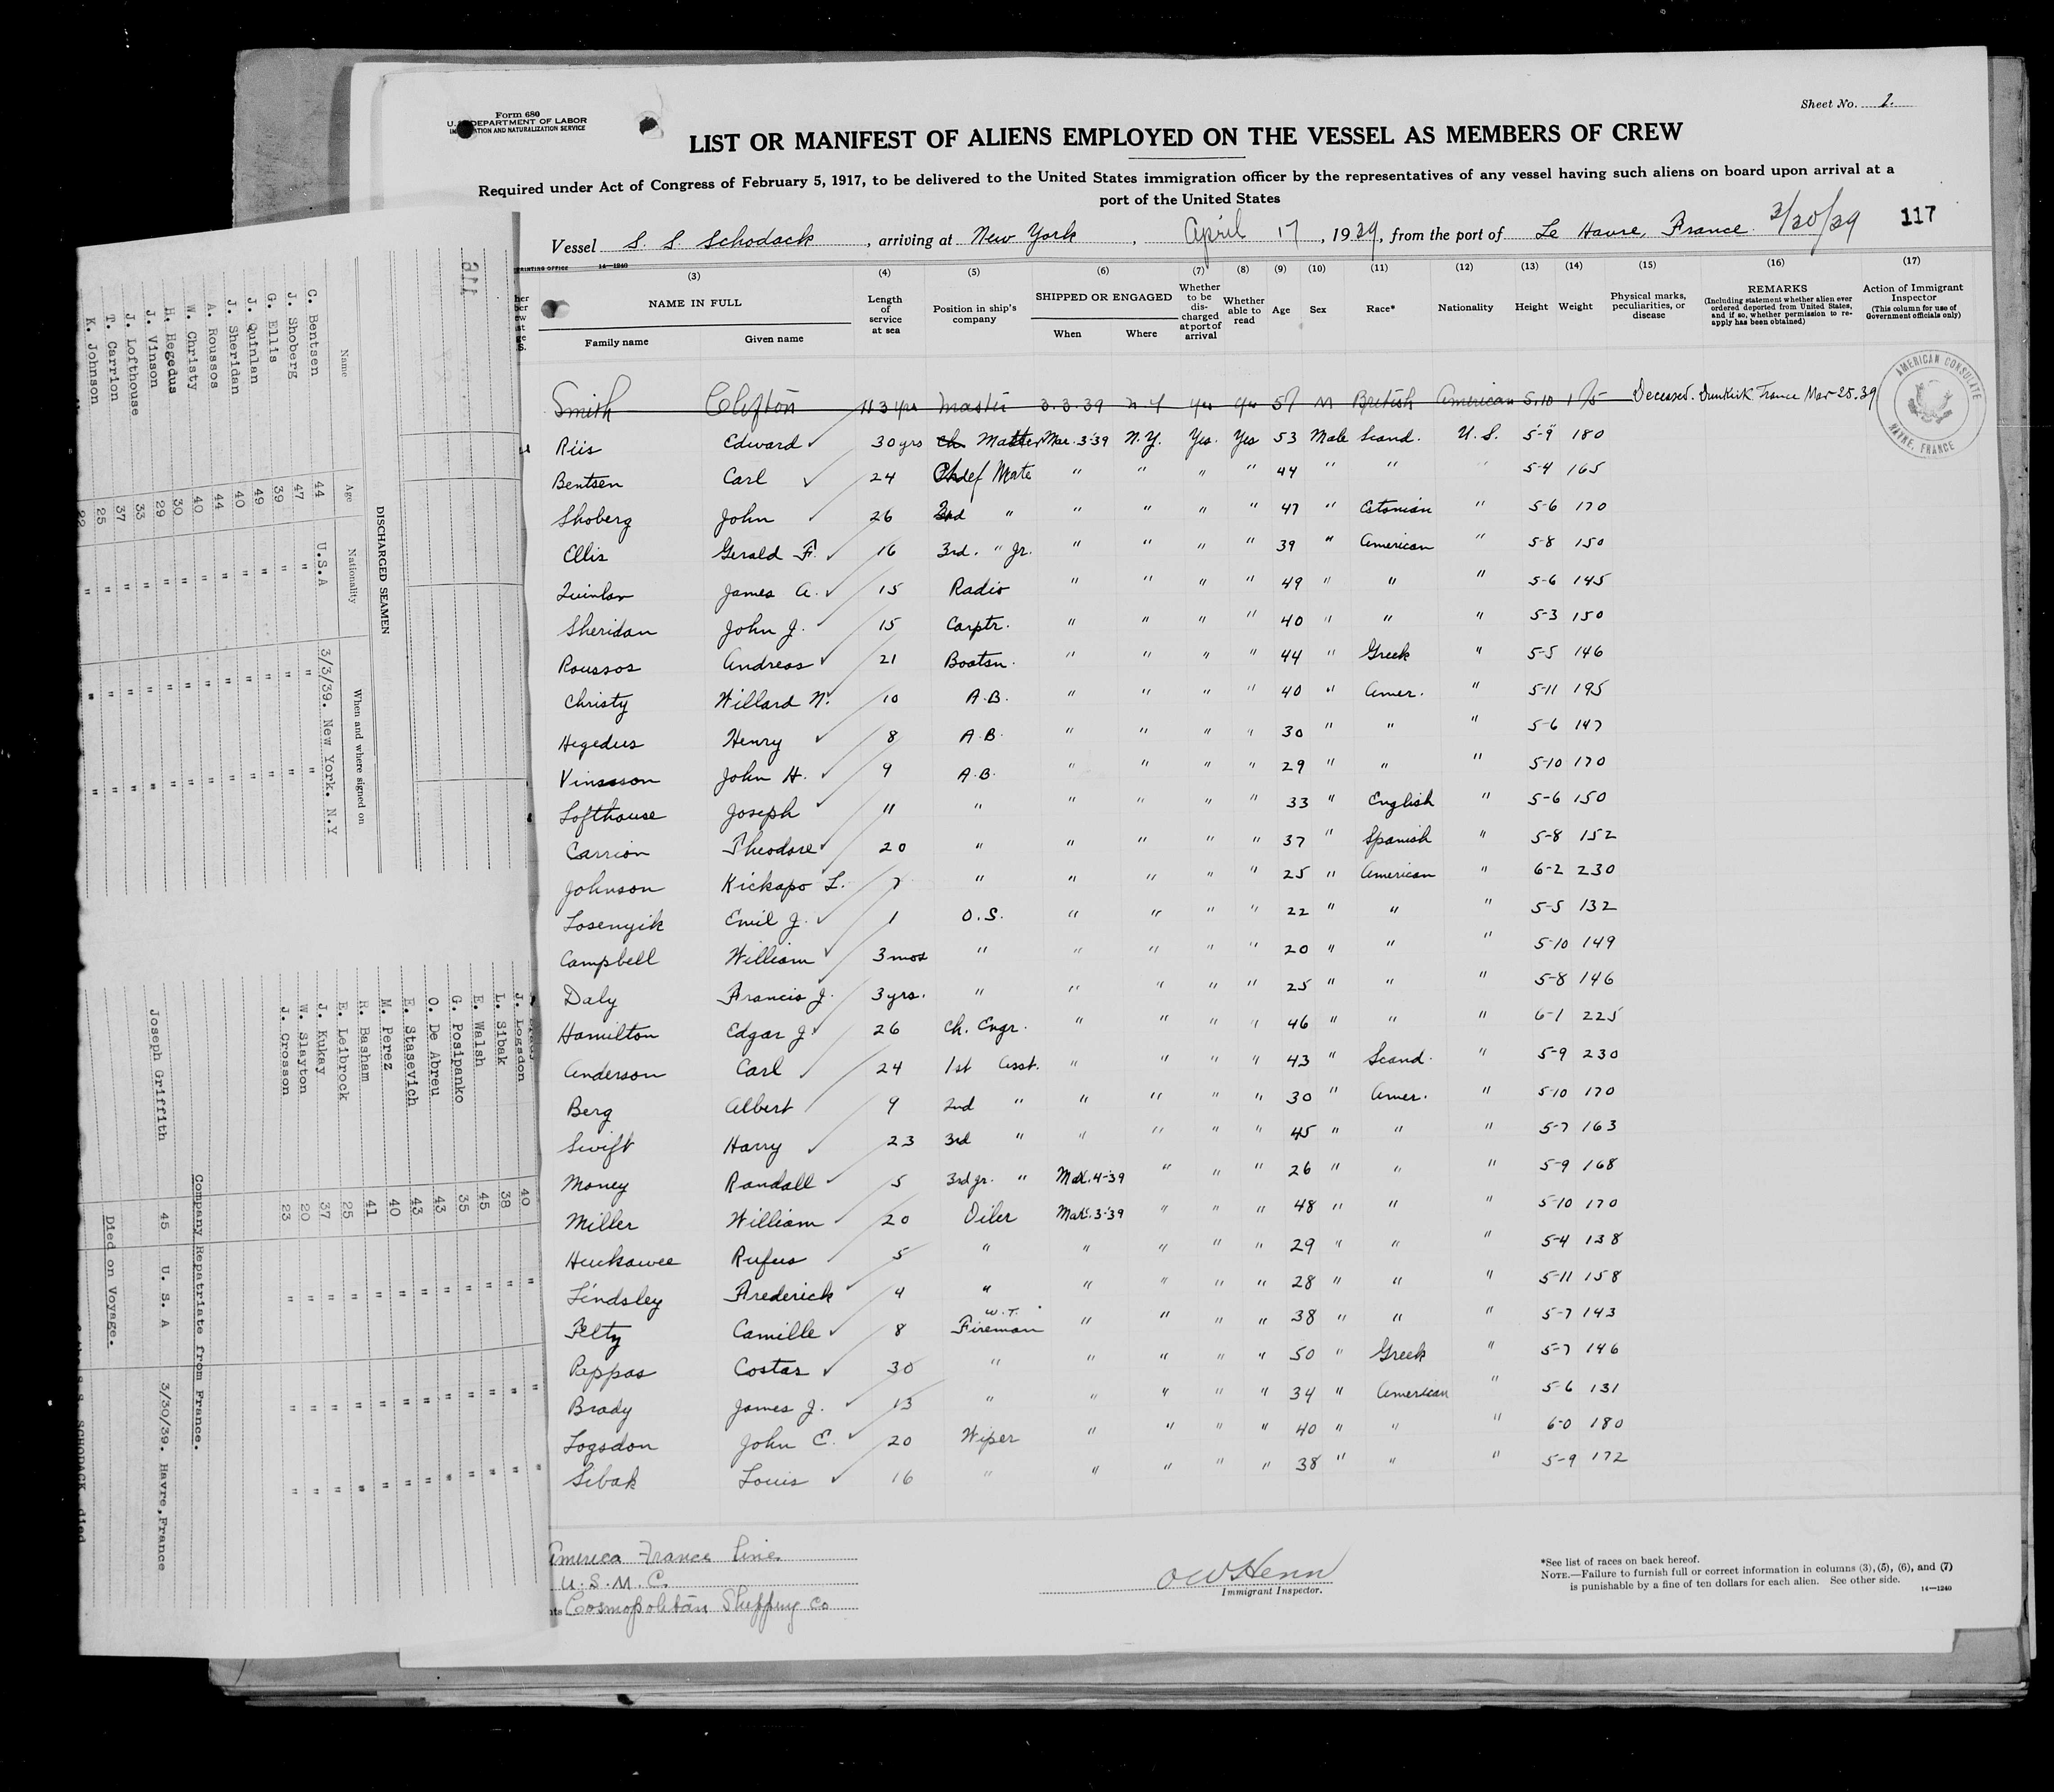 Form 680
U. S. DEPARTMENT OF LABOR
IMMIGRATION AND NATURALIZATION SERVICE
Sheet No. 1.
LIST OR MANIFEST OF ALIENS EMPLOYED ON THE VESSEL AS MEMBERS OF CREW
Required under Act of Congress of February 5, 1917, to be delivered to the United States immigration officer by the representatives of any vessel having such aliens on board upon arrival at a
port of the United States
Vessel S. S. Schodack, arriving at New York, April 17, 1939, from the port of Le Havre, France. 3/30/39 117
PRINTING OFFICE 14—1240
(3) (4) (5) (6) (7) (8) (9) (10) (11) (12) (13) (14) (15) (16) (17)
NAME IN FULL
Family name Given name
Length of service at sea
Position in ship's company
SHIPPED OR ENGAGED
When Where
Whether to be discharged at port of arrival
Whether able to read
Age
Sex
Race*
Nationality
Height
Weight
Physical marks, peculiarities, or disease
REMARKS
(Including statement whether alien ever ordered deported from United States, and if so, whether permission to reapply has been obtained)
Action of Immigrant Inspector
(This column for use of Government officials only)
Smith Clifton 43 yrs Master 3.3.39 N Y Yes Yes 57 M British American 5.10 175 Deceased. Dunkirk France Mar 25.39
AMERICAN CONSULATE
HAVRE, FRANCE
Riis Edward 30 yrs Ch. Master Mar. 3-39 N.Y. Yes. Yes 53 Male Scand. U.S. 5-9 180
Bentsen Carl 24 Chief Mate " " " " 44 " " " 5-4 165
Shoberg John 26 2nd " " " " " 47 " Estonian " 5-6 170
Ellis Gerald F. 16 3rd. " Jr. " " " " 39 " American " 5-8 150
Quinlan James A. 15 Radio " " " " 49 " " " 5-6 145
Sheridan John J. 15 Carptr. " " " " 40 " " " 5-3 150
Roussos Andreas 21 Boatsn. " " " " 44 " Greek " 5-5 146
Christy Willard N. 10 A.B. " " " " 40 " Amer. " 5-11 195
Hegedus Henry 8 A.B. " " " " 30 " " " 5-6 147
Vinsson John H. 9 A.B. " " " " 29 " " " 5-10 170
Lofthouse Joseph 11 " " " " " 33 " English " 5-6 150
Carrion Theodore 20 " " " " " 37 " Spanish " 5-8 152
Johnson Kickapo L. 7 " " " " " 25 " American " 6-2 230
Losenyik Emil J. 1 O.S. " " " " 22 " " " 5-5 132
Campbell William 3 mos " " " " " 20 " " " 5-10 149
Daly Francis J. 3 yrs. " " " " " 25 " " " 5-8 146
Hamilton Edgar J. 26 Ch. Engr. " " " " 46 " " " 6-1 225
Anderson Carl 24 1st Asst. " " " " 43 " Scand. " 5-9 230
Berg Albert 9 2nd " " " " " 30 " Amer. " 5-10 170
Swift Harry 23 3rd " " " " " 45 " " " 5-7 163
Money Randall 5 3rd jr. " Mar. 4-39 " " " 26 " " " 5-9 168
Miller William 20 Oiler Mar. 3-39 " " " 48 " " " 5-10 170
Huckawee Rufus 5 " " " " " 29 " " " 5-4 138
Lindsley Frederick 4 " " " " " 28 " " " 5-11 158
Felty Camille 8 W.T. Fireman " " " " 38 " " " 5-7 143
Pappas Costas 30 " " " " " 50 " Greek " 5-7 146
Brady James J. 13 " " " " " 34 " American " 5-6 131
Logsdon John E. 20 Wiper " " " " 40 " " " 6-0 180
Sibak Louis 16 " " " " " 38 " " " 5-9 172
America France Line
U.S.M.C.
Cosmopolitan Shipping Co
O W Henn
Immigrant Inspector.
*See list of races on back hereof.
NOTE.—Failure to furnish full or correct information in columns (3), (5), (6), and (7)
is punishable by a fine of ten dollars for each alien. See other side.
14—1240
DISCHARGED SEAMEN
Name Age Nationality When and where signed on
C. Bentsen 44 U.S.A 3/3/39. New York. N.Y
J. Shoberg 47 " " "
G. Ellis 39 " " "
J. Quinlan 49 " " "
J. Sheridan 40 " " "
A. Roussos 44 " " "
W. Christy 40 " " "
H. Hegedus 30 " " "
J. Vinson 29 " " "
J. Lofthouse 33 " " "
T. Carrion 37 " " "
K. Johnson 25 " " "
J. Logsdon 40 " " "
L. Sibak 38 " " "
E. Walsh 45 " " "
G. Posipanko 35 " " "
O. De Abreu 43 " " "
E. Stasevich 43 " " "
M. Perez 40 " " "
R. Basham 41 " " "
E. Leibrock 25 " " "
J. Kukay 37 " " "
W. Slayton 20 " " "
J. Crosson 23 " " "
Company Repatriate from France.
Joseph Griffith 45 U. S. A 3/30/39. Havre,France
Died on Voyage.